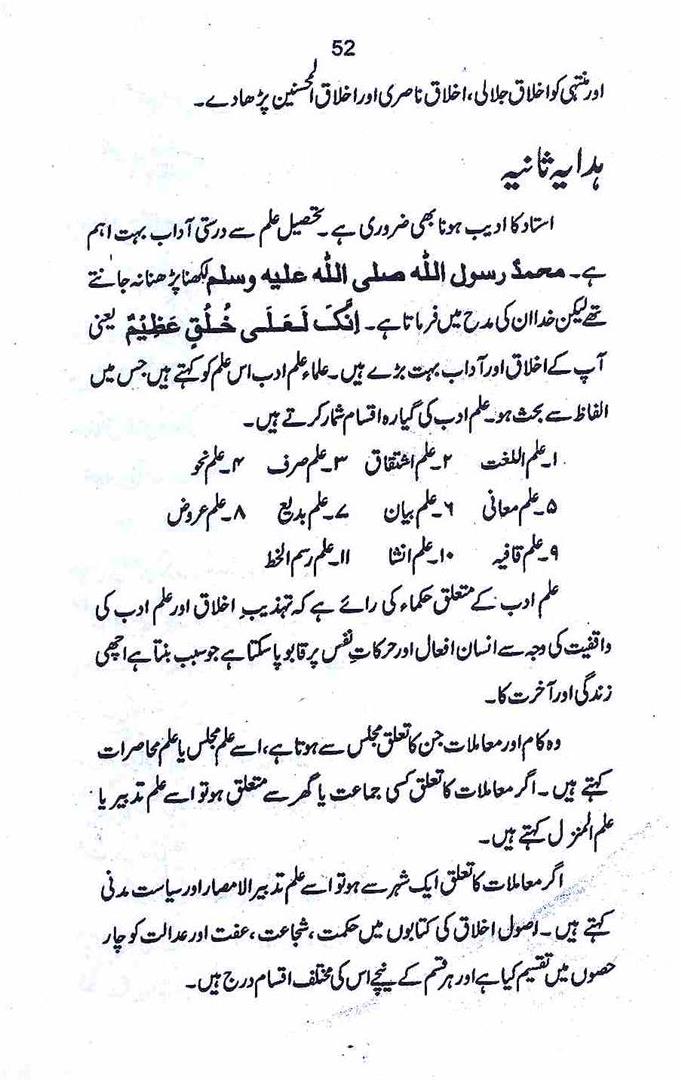 52
اور منتہی کو اخلاق جلالی، اخلاق ناصری اور اخلاق المحسنین پڑھادے۔
ہدایہ ثانیہ
استاد کا ادیب ہونا بھی ضروری ہے۔ تحصیل علم سے درستی آداب بہت اہم
ہے۔ محمدؐ رسول اللہ صلی اللہ علیہ وسلم لکھنا پڑھنا نہ جانتے
تھے لیکن خدا ان کی مدح میں فرماتا ہے۔ اِنَّکَ لَعَلٰی خُلُقٍ عَظِیْمٌ یعنی
آپ کے اخلاق اور آداب بہت بڑے ہیں۔ علماء علم ادب اس علم کو کہتے ہیں جس میں
الفاظ سے بحث ہو۔ علم ادب کی گیارہ اقسام شمار کرتے ہیں۔
۱۔ علم اللغت ۲۔ علم اشتقاق ۳۔ علم صرف ۴۔ علم نحو
۵۔ علم معانی ۶۔ علم بیان ۷۔ علم بدیع ۸۔ علم عروض
۹۔ علم قافیہ ۱۰۔ علم انشا ۱۱۔ علم رسم الخط
علم ادب کے متعلق حکماء کی رائے ہے کہ تہذیبِ اخلاق اور علم ادب کی
واقفیت کی وجہ سے انسان افعال اور حرکاتِ نفس پر قابو پا سکتا ہے جو سبب بنتا ہے اچھی
زندگی اور آخرت کا۔
وہ کام اور معاملات جن کا تعلق مجلس سے ہوتا ہے، اسے علم مجلس یا علم محاصرات
کہتے ہیں۔ اگر معاملات کا تعلق کسی جماعت یا گھر سے متعلق ہو تو اسے علم تدبیر یا
علم المنزل کہتے ہیں۔
اگر معاملات کا تعلق ایک شہر سے ہو تو اسے علم تدبیر الامصار اور سیاست مدنی
کہتے ہیں۔ اصول اخلاق کی کتابوں میں حکمت، شجاعت، عفت اور عدالت کو چار
حصوں میں تقسیم کیا ہے اور ہر قسم کے نیچے اس کی مختلف اقسام درج ہیں۔